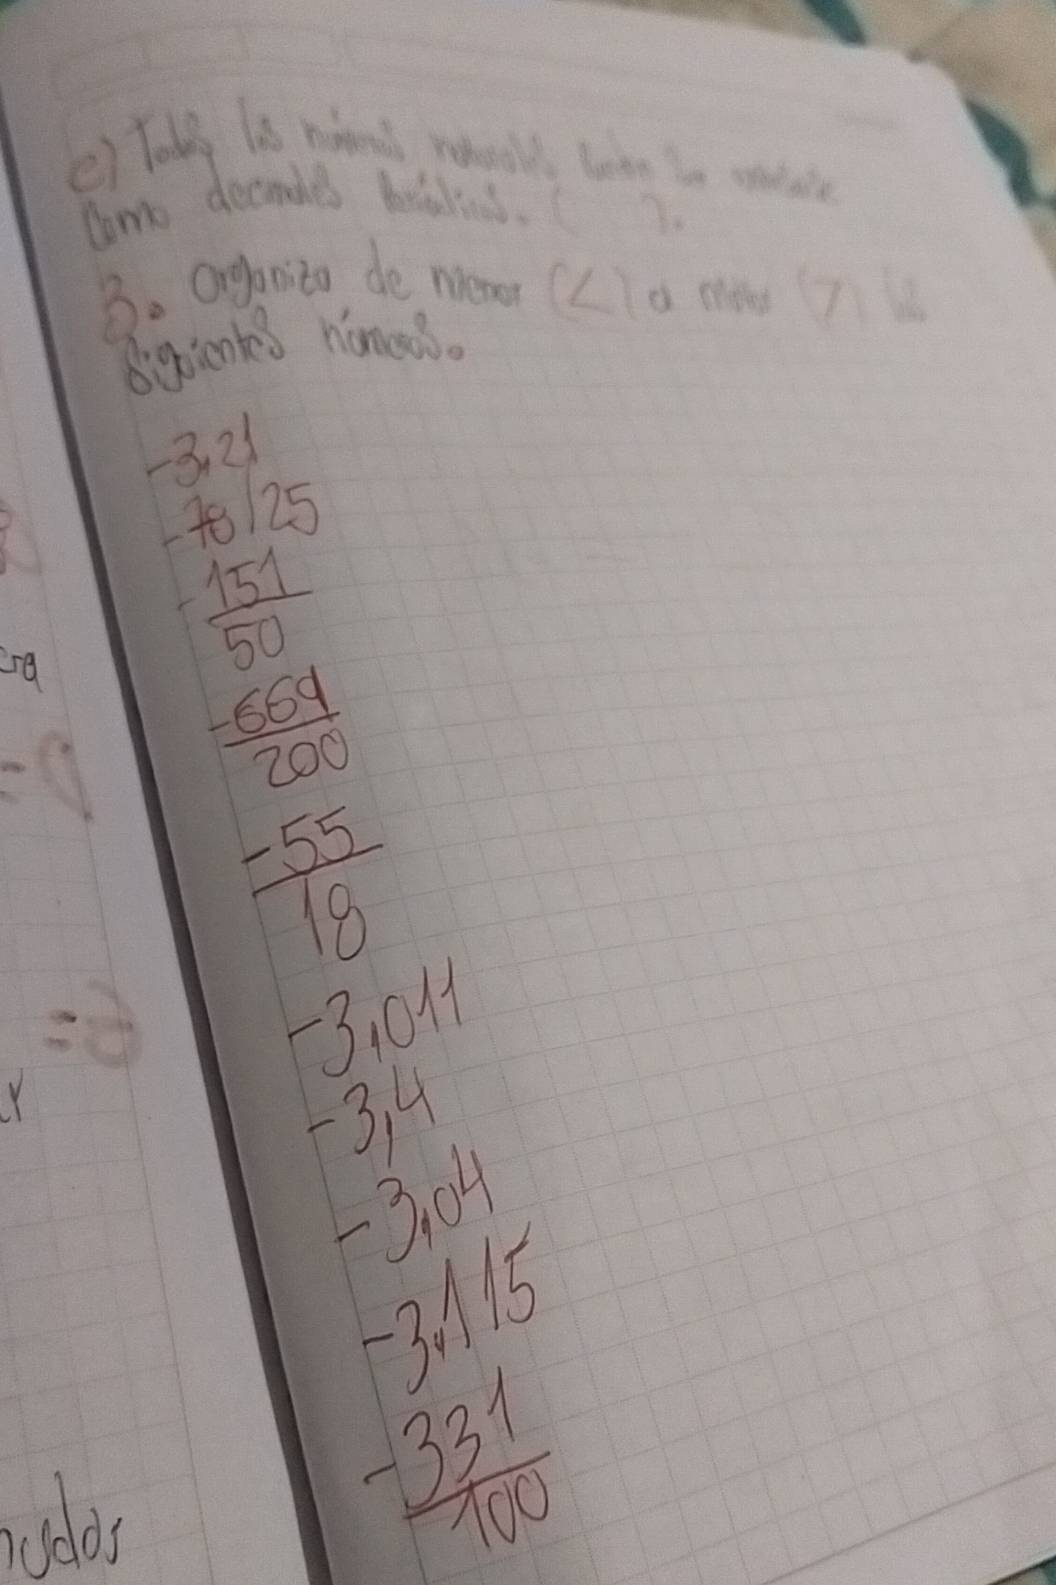 e) Todos los números naturales
como decimales periódicos. ( ).
3. Organizo de menor (<) a mayor (>) los
siguientes números.
-3,21
-78/25
-151
50
-669
200
-55
18
-3,011
-3,4
-3,04
-3,115
-331
100
era
nudos